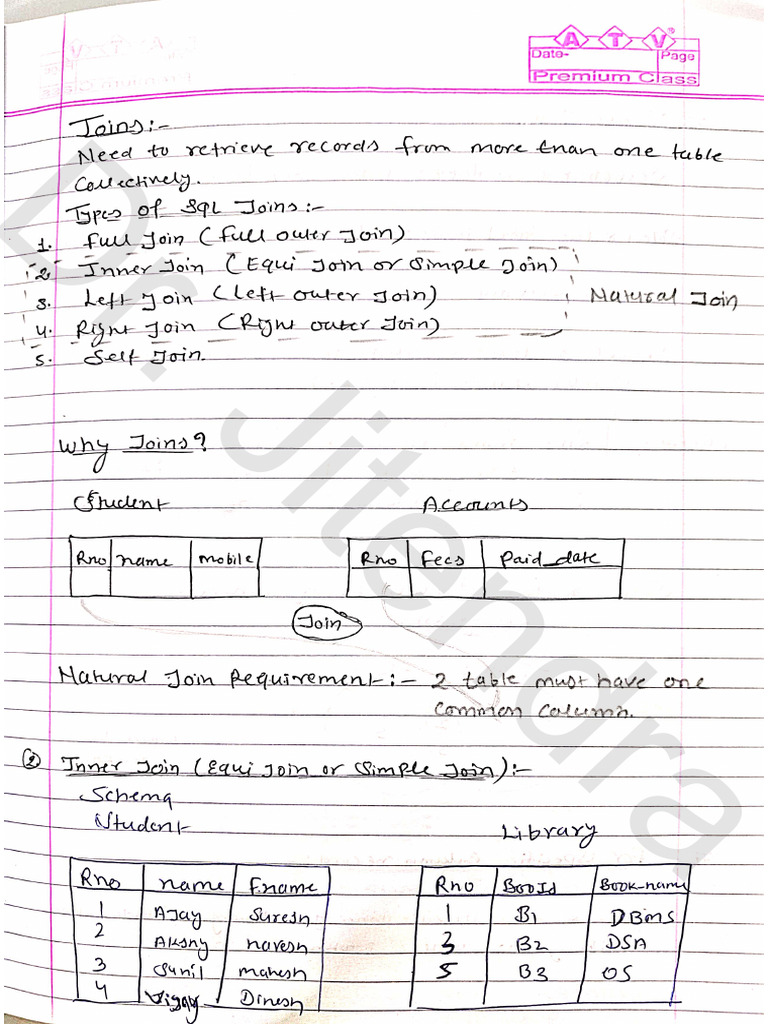 A T V
Date- Page
Premium Class
Joins:-
Need to retrieve records from more than one table
collectively.
Types of SQL Joins:-
1. Full Join (Full outer Join)
2. Inner Join (Equi Join or Simple Join)
3. Left Join (Left outer Join) Natural Join
4. Right Join (Right outer Join)
5. Self Join.
Why Joins?
Student Accounts
Rno name mobile Rno Fees Paid_date
Join
Natural Join Requirement:- 2 table must have one
common column.
② Inner Join (Equi Join or Simple Join):-
Schema
Student Library
Rno name F.name Rno BooId Book-name
1 Ajay Suresh 1 B1 DBMS
2 Akshy naresh 3 B2 DSA
3 Sunil mahesh 5 B3 OS
4 Dinesh
Dr. Jitendra